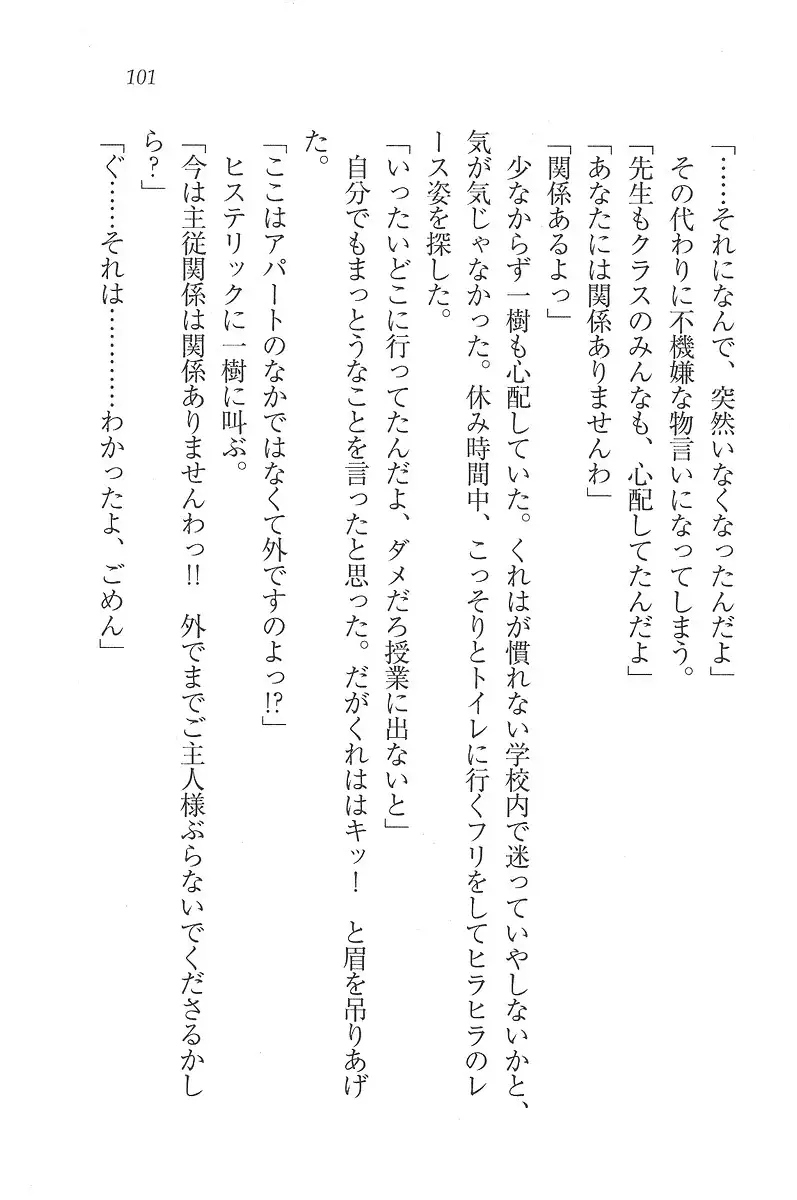 101
「……それになんで、突然いなくなったんだよ」
その代わりに不機嫌な物言いになってしまう。
「先生もクラスのみんなも、心配してたんだよ」
「あなたには関係ありませんわ」
「関係あるよっ」
少なからず一樹も心配していた。くれはが慣れない学校内で迷っていやしないかと、
気が気じゃなかった。休み時間中、こっそりとトイレに行くフリをしてヒラヒラのレ
ース姿を探した。
「いったいどこに行ってたんだよ、ダメだろ授業に出ないと」
自分でもまっとうなことを言ったと思った。だがくれははキッ！　と眉を吊りあげ
た。
「ここはアパートのなかではなくて外ですのよっ!?」
ヒステリックに一樹に叫ぶ。
「今は主従関係は関係ありませんわっ!!　外でまでご主人様ぶらないでくださるかし
ら？」
「ぐ……それは…………わかったよ、ごめん」